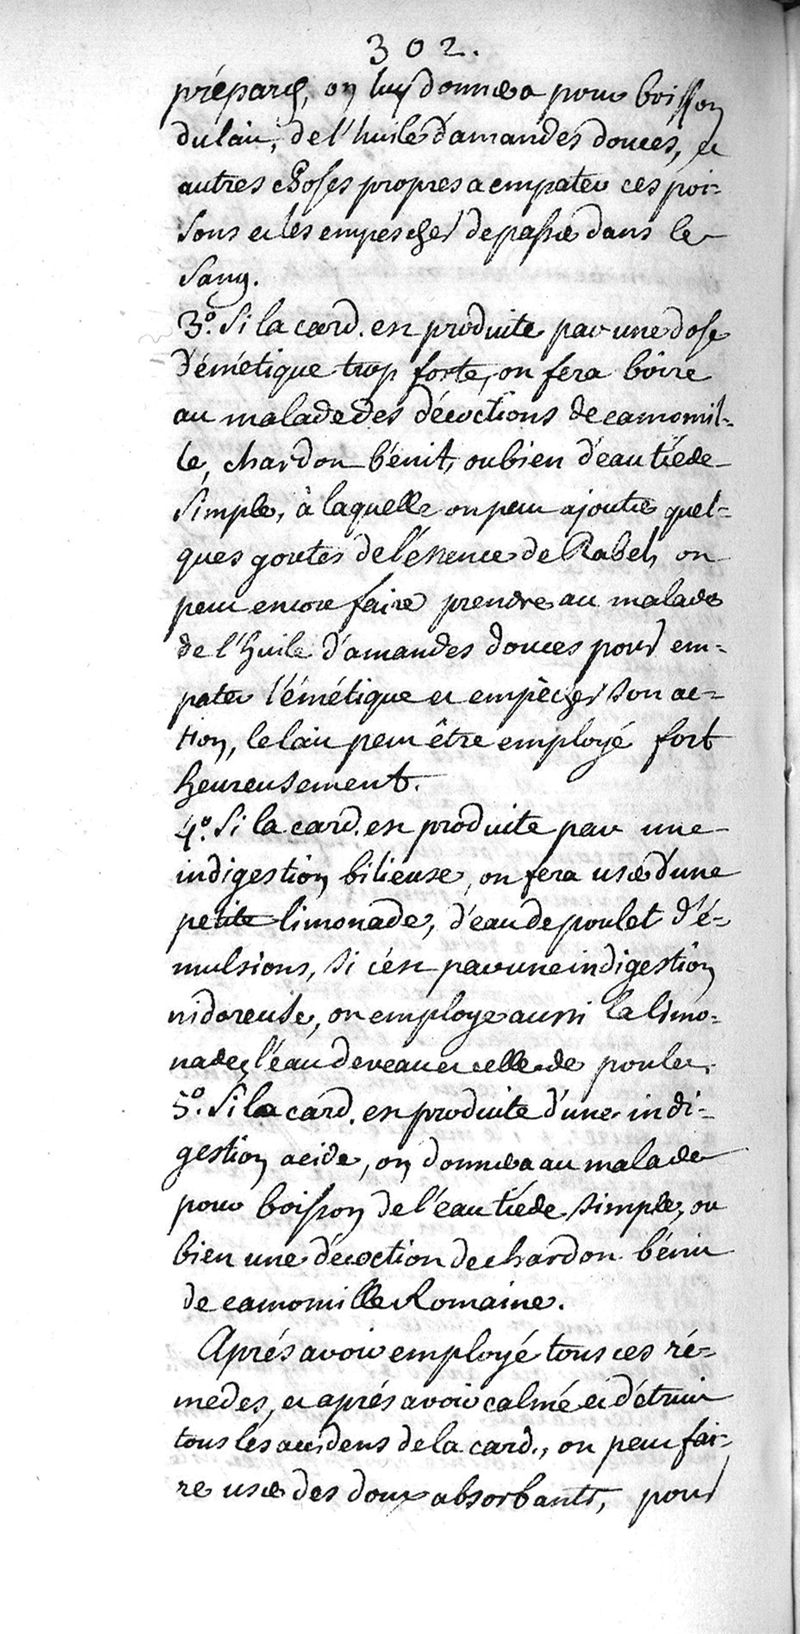 302.
préparés, on luy donnera pour boisson
du lait, de l'huile d'amandes douces, et
autres choses propres a empater ces poi-
sons et les empescher de passer dans le
sang.
3.º Si la card. est produite par une dose
d'émétique trop forte, on fera boire
au malade des décoctions de camomil-
le, chardon bénit, ou bien d'eau tiéde
simple, à laquelle on peut ajouter quel-
ques goutes de l'éssence de Rabel, on
peut encore faire prendre au malade
de l'huile d'amandes douces pour em-
pater l'émétique et empècher son ac-
tion, le lait peut être employé fort
heureusement.
4.º Si la card. est produite par une
indigestion bilieuse, on fera user d'une
petite limonade, d'eau de poulet d'é-
mulsions, si c'est par une indigestion
nidoreuse, on employe aussi la limo-
nade, l'eau de veau et celle de poulet.
5.º Si la card. est produite d'une indi-
gestion acide, on donnera au malade
pour boisson de l'eau tiéde simple, ou
bien une décoction de chardon bénit
de camomille Romaine.
Aprés avoir employé tous ces ré-
medes, et aprés avoir calmé et détruit
tous les accidens de la card., on peut fai-
re user des doux absorbants, pour